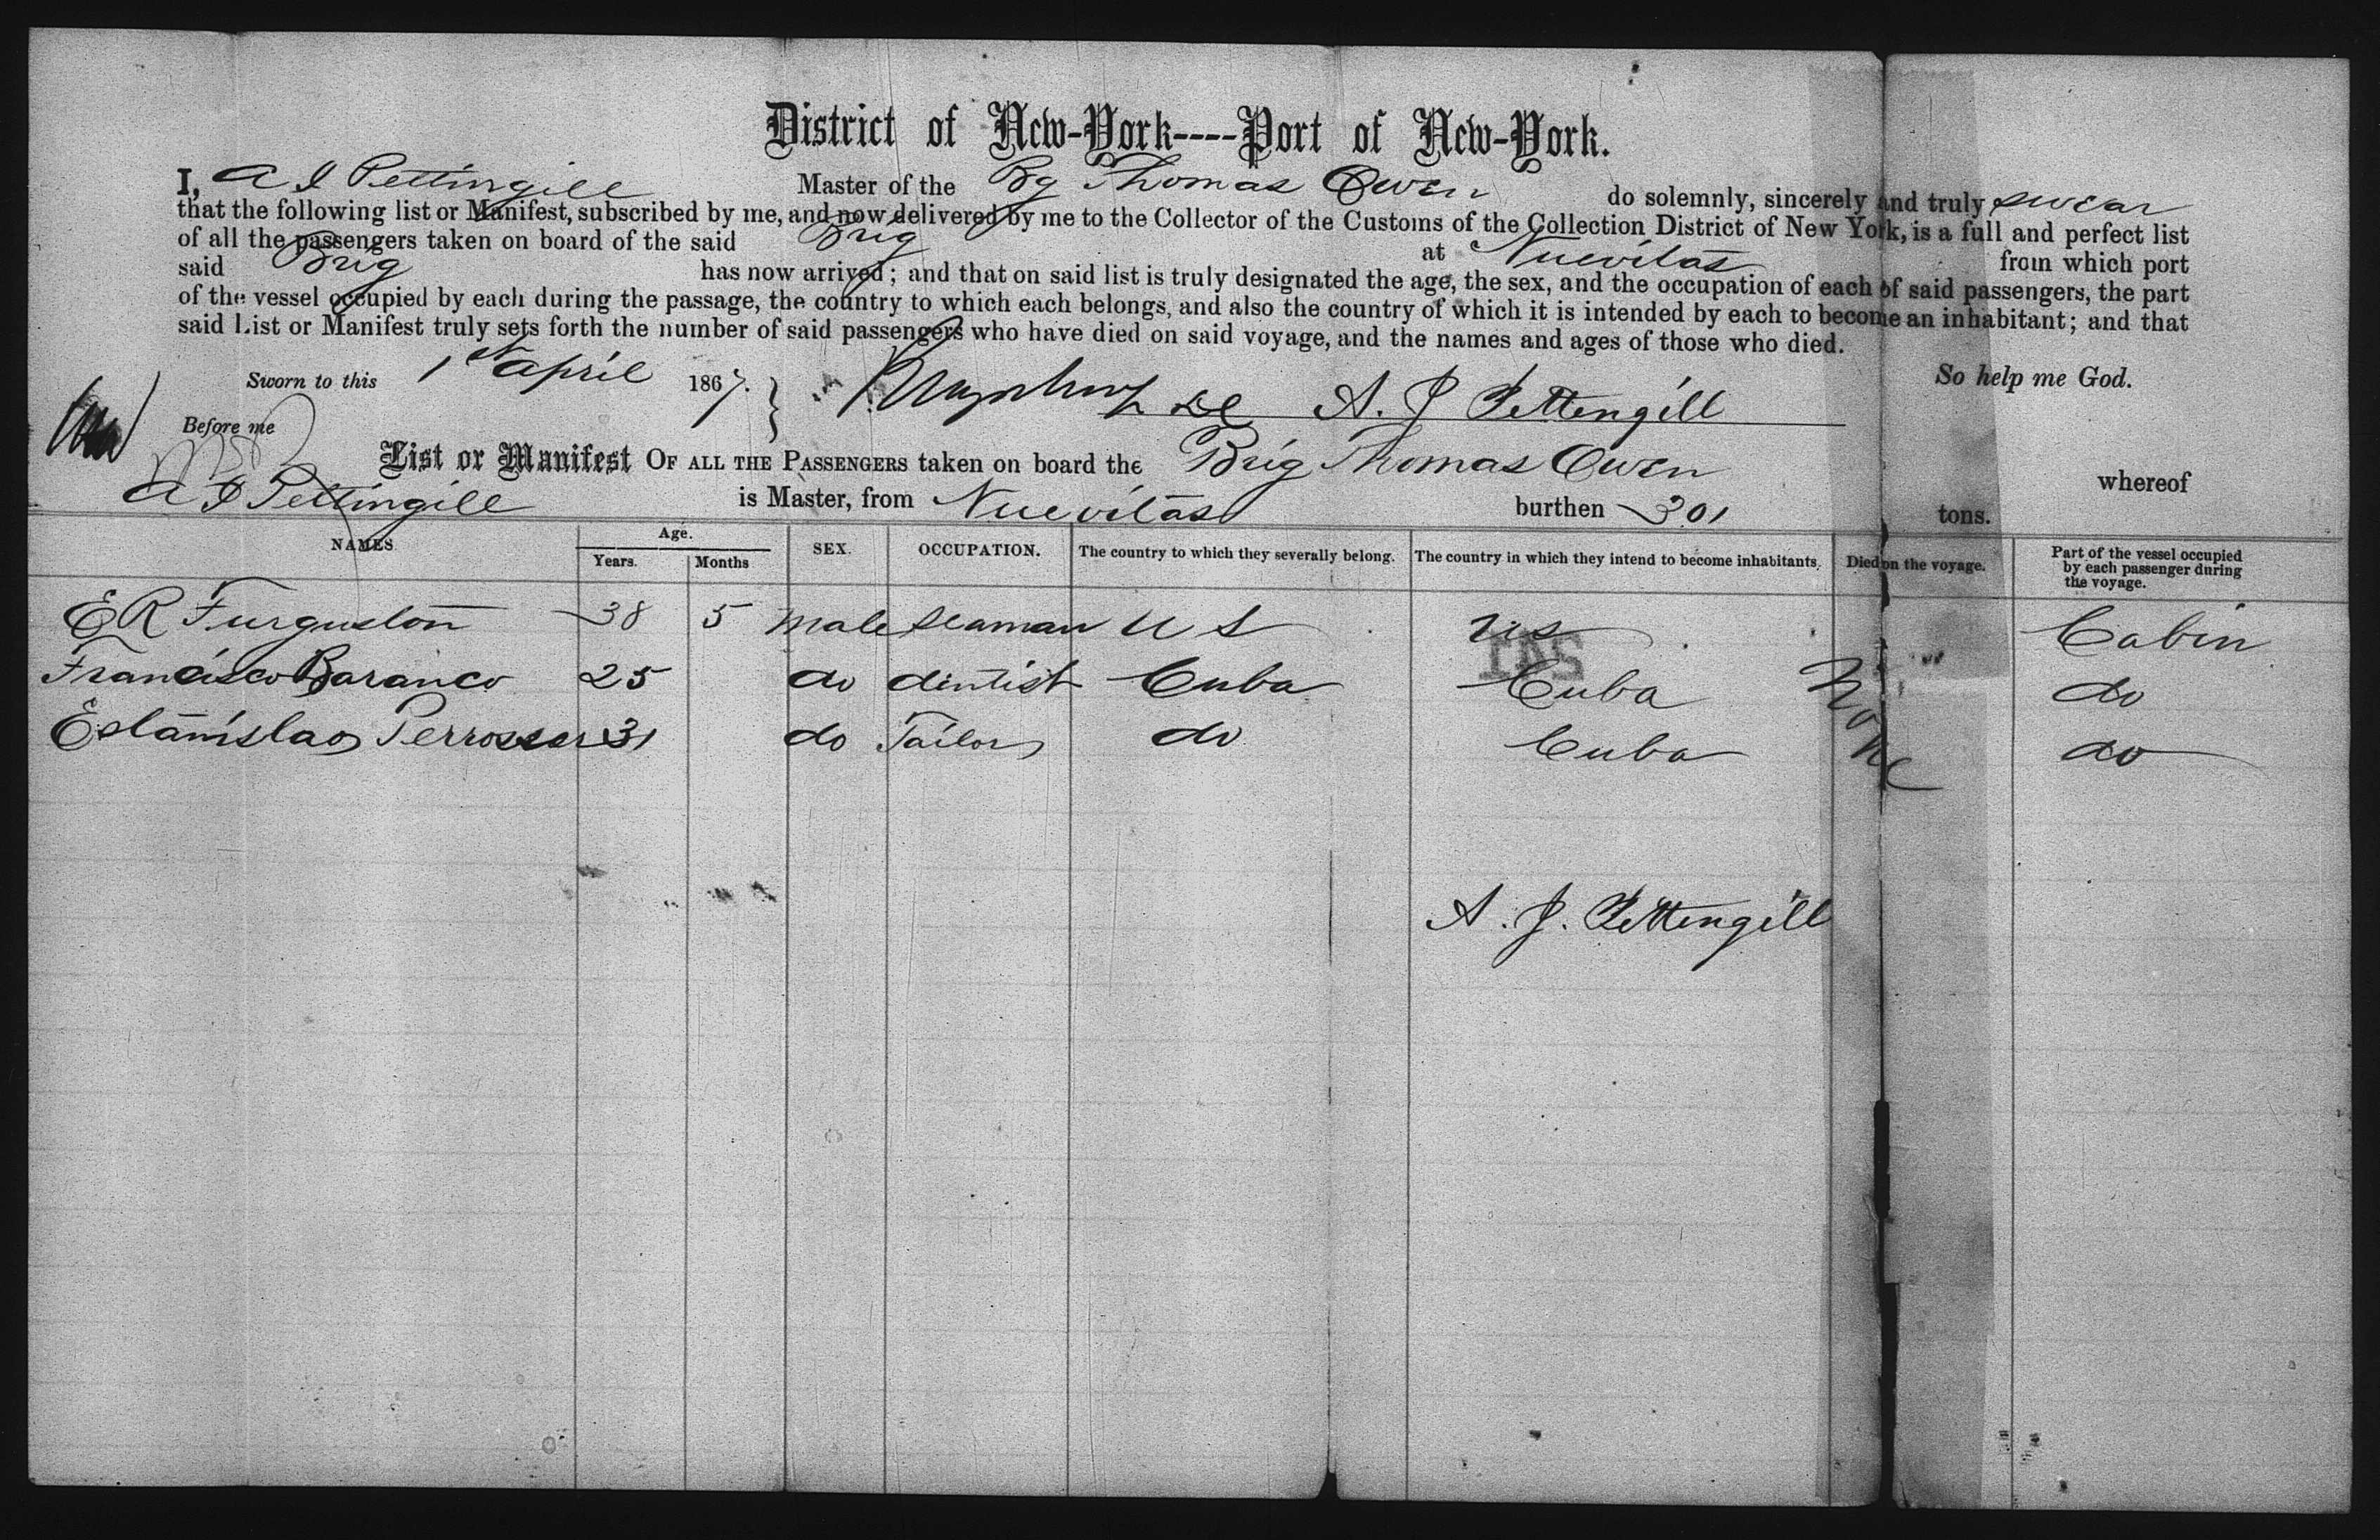 District of New-York----Port of New-York.
I, A J Pettingill Master of the Bg Thomas Owen do solemnly, sincerely and truly swear
that the following list or Manifest, subscribed by me, and now delivered by me to the Collector of the Customs of the Collection District of New York, is a full and perfect list
of all the passengers taken on board of the said Brig at Nuevitas from which port
said Brig has now arrived; and that on said list is truly designated the age, the sex, and the occupation of each of said passengers, the part
of the vessel occupied by each during the passage, the country to which each belongs, and also the country of which it is intended by each to become an inhabitant; and that
said List or Manifest truly sets forth the number of said passengers who have died on said voyage, and the names and ages of those who died.
So help me God.
Sworn to this 1st april 1867. A. J. Pettengill
Before me
List or Manifest OF ALL THE PASSENGERS taken on board the Brig Thomas Owen whereof
A J Pettingill is Master, from Nuevitas burthen 301 tons.
NAMES Age. Years. Months SEX. OCCUPATION. The country to which they severally belong. The country in which they intend to become inhabitants. Died on the voyage. Part of the vessel occupied by each passenger during the voyage.
E R Furguston 38 5 male seaman U S U S Cabin
Francisco Baranco 25 do dentist Cuba Cuba None do
Estanislao 31 do Tailor do Cuba do
A. J. Pettengill